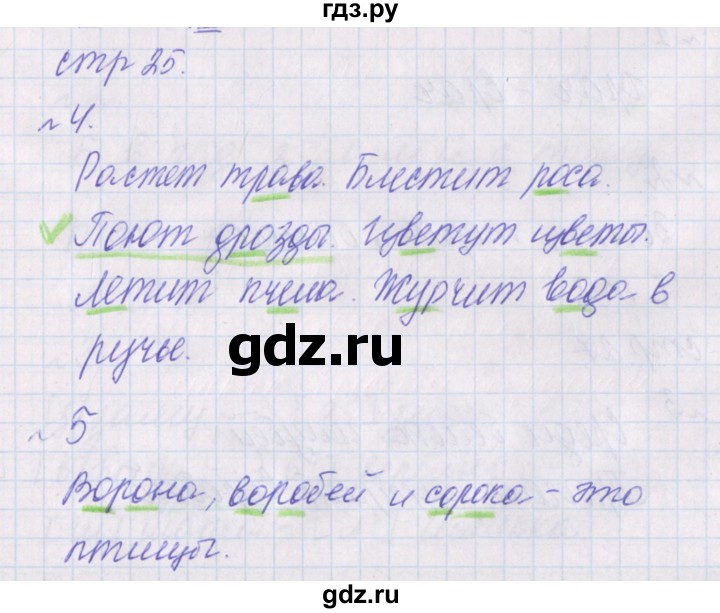 гдз.ру
стр 25.
№4.
Растет трава. Блестит роса.
Поют дрозды. Цветут цветы.
Летит пчела. Журчит вода в
ручье.
gdz.ru
№5
Ворона, воробей и сорока - это
птицы.
gdz.ru